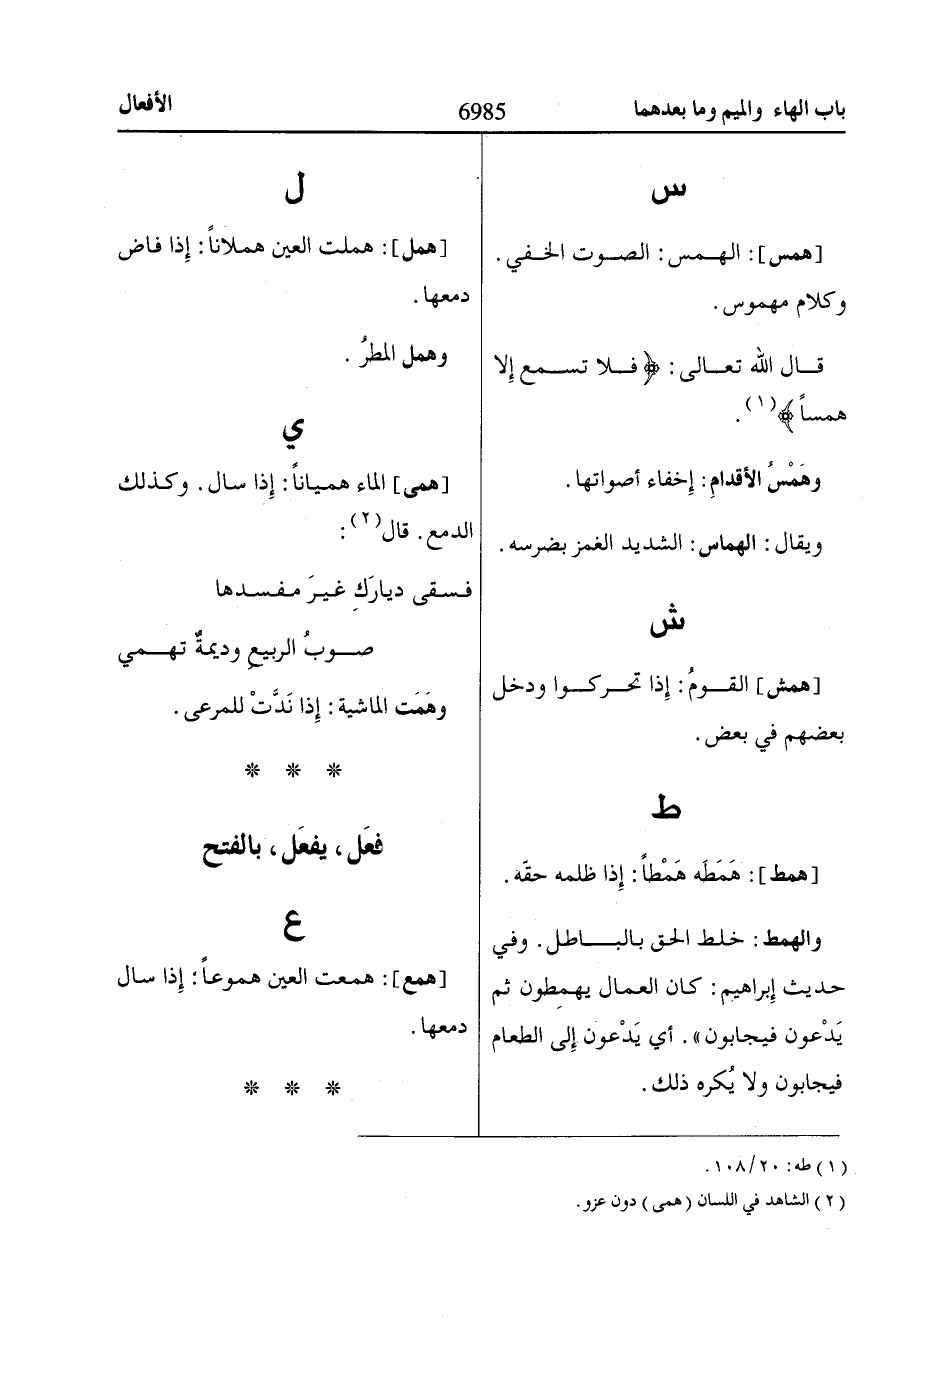 باب الهاء والميم وما بعدهما
6985
الأفعال
س
[همس]: الهمس: الصوت الخفي.
وكلام مهموس.
قال الله تعالى: ﴿فلا تسمع إلا
همساً﴾(١).
وهَمْسُ الأقدامِ: إخفاء أصواتها.
ويقال: الهماس: الشديد الغمز بضرسه.
ش
[همش] القومُ: إذا تحركوا ودخل
بعضهم في بعض.
ط
[همط]: هَمَطَه هَمْطاً: إذا ظلمه حقّه.
والهمط: خلط الحق بالباطل. وفي
حديث إبراهيم: كان العمال يهمطون ثم
يَدْعون فيجابون». أي يَدْعون إلى الطعام
فيجابون ولا يُكره ذلك.
ل
[همل]: هملت العين هملاناً: إذا فاض
دمعها.
وهمل المطرُ.
ي
[همى] الماء همياناً: إذا سال. وكذلك
الدمع. قال(٢):
فسقى ديارَكِ غيرَ مفسدها
صوبُ الربيعِ وديمةٌ تهمي
وهَمَت الماشية: إذا نَدَّتْ للمرعى.
* * *
فعَل، يفعَل، بالفتح
ع
[همع]: همعت العين هموعاً: إذا سال
دمعها.
* * *
(١) طه: ١٠٨/٢٠.
(٢) الشاهد في اللسان (همى) دون عزو.